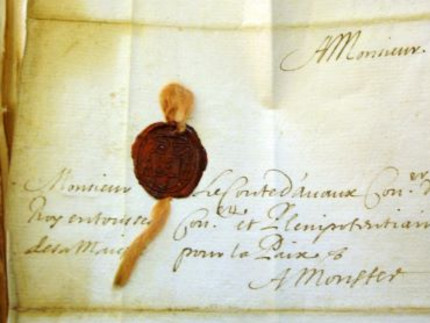 A Monsieur.
Monsieur Le Conte d'avaux Con.er
Roy en tous se Con.ers et Plenipotentiair
de sa Maie pour la Paix
A Monster